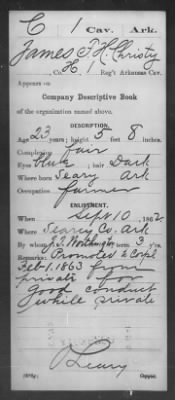 C 1 Cav. Ark.
James F. H. Christy
Co. H, 1 Reg't Arkansas Cav.
Appears on
Company Descriptive Book
of the organization named above.
DESCRIPTION.
Age 23 years; height 5 feet 8 inches.
Complexion Fair
Eyes Blue; hair Dark
Where born Searcy Ark
Occupation farmer
ENLISTMENT.
When Sept 10, 1862
Where Searcy Co, Ark
By whom J. Worthington term 3 y'rs.
Remarks: Promoted to Corpl
Feb 1. 1863 from
private for
Good conduct
while private
O'Leary
Copyist.